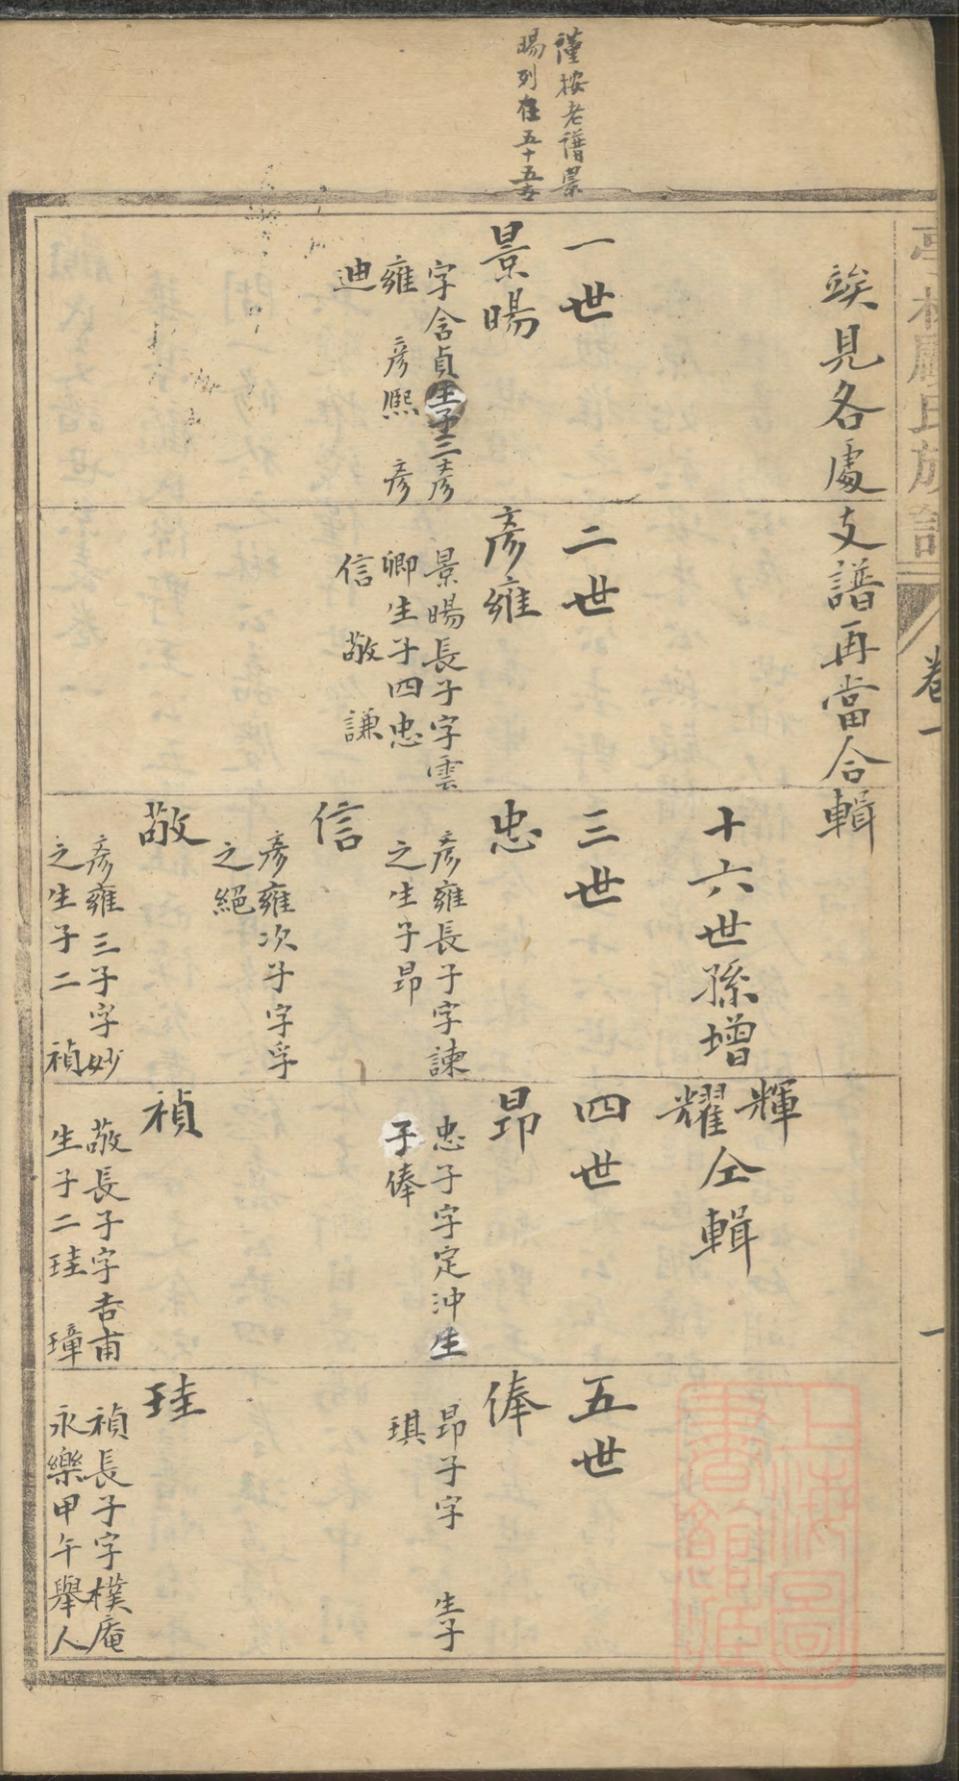 謹按老譜景
暘列在五十五世
亭林顧氏族譜
卷一
一
竢見各處支譜再當合輯
十六世孫增輝耀仝輯
一世
景暘
字含貞生子三彥
雍 彥熙 彥
迪
二世
彥雍
景暘長子字雲
卿生子四忠
信 敬 謙
三世
忠
彥雍長子字諫
之生子昂
信
彥雍次子字孚
之絕
敬
彥雍三子字妙
之生子二 禎
四世
昂
忠子字定沖生
子俸
禎
敬長子字吉甫
生子二珪 璋
五世
俸
昂子字 生子
琪
珪
禎長子字樸庵
永樂甲午舉人
上海圖書館藏